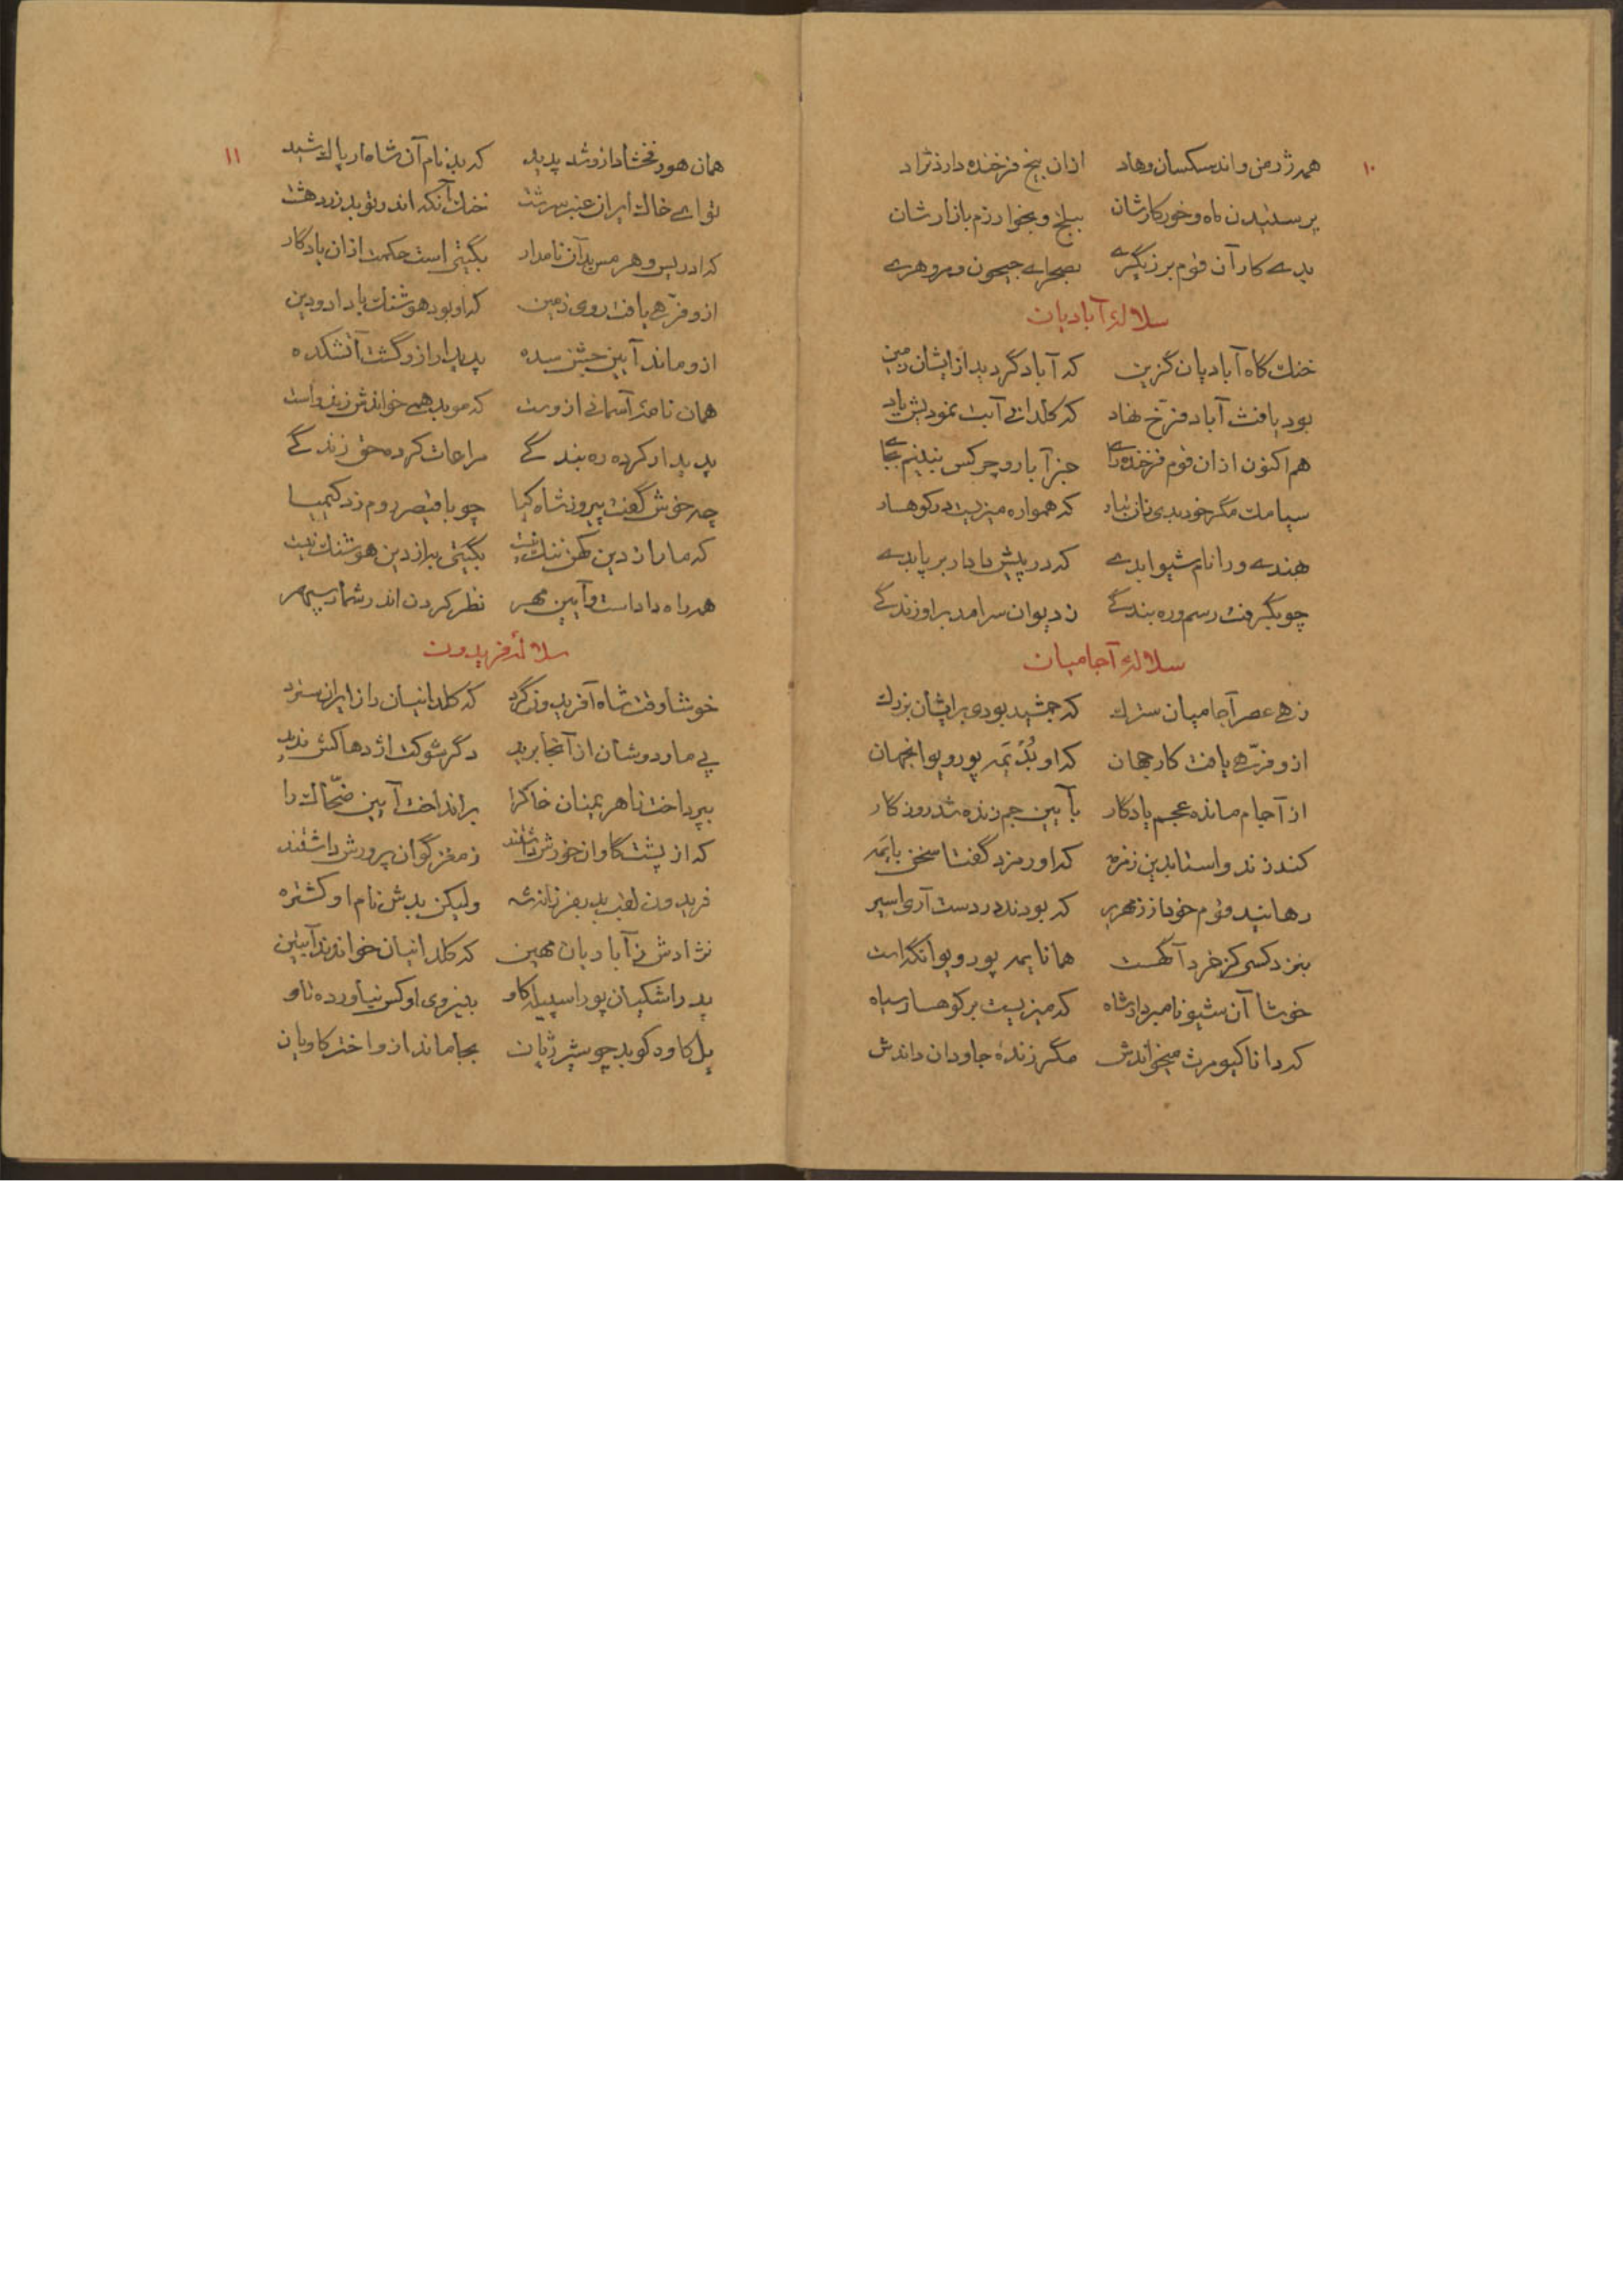 ۱۰
همه ژرمن و اندسکسان و هاد ازان بیخ فرخنده دارد نژاد
پرستیدن ماه و خور کارشان ببلخ و بخوارزم بازارشان
بدے کار آن قوم برزیگرے بصحرای جیحون و مرو و هرے
سلالهٔ آبادیان
خنک گاه آبادیان گزین که آباد گردید ازایشان زمین
بود یافث آباد فرّخ نهاد که کلدانی آبت نمودیش یاد
هم اکنون ازان قوم فرخنده رای جز آبار و چرکس نبینم بجای
سیامک مگر خود بدی زان تبار که همواره میزیست در کوهسار
هندے ورا نام شیوا بدے که در پیش دادار بر پا بدے
چو بگرفت رسم و ره بندگے ز دیوان سرامد براو زندگے
سلالهٔ آجامیان
زهے عصر آجامیان سترک که جمشید بودی برایشان بزرک
ازو فرّهے یافت کار جهان که او بُد یَمه پور ویوانجهان
از آجام مانده عجم یادگار بآیین جم زنده شد روزگار
کند زند واستا بدین زمزمه که اورمزد گفتا سخن با یَمه
رهانید قوم خود از زمهریر که بودند در دست آری اسیر
بنزد کسی کز خرد آگهست همانا یمه پور ویوانگه است
خوشا آن شیونامبردار شاه که میزیست بر کوهسار سیاه
که دانا کیومرث میخواندش مگر زندهٔ جاودان داندش
۱۱
همان هود فخشاد ازو شد پدید که بد نام آن شاه ار پاک شید
تو ای خاک ایران عنبر سرشت خنک آنکه اندر تو بد زردهشت
که ادریس و هرمس بد آن نامدار بگیتی است حکمت ازان یادگار
ازو فرّهے یافت روی زمین که او بود هوشنک با داد و دین
ازو ماند آیین جشن سده پدیدار ازو گشت آتشکده
همان نامهٔ آسمانی ازوست که موبد همی خواندش زندواست
پدیدار کرده ره بندگے مراعات کرده حق زندگے
چه خوش گفت پیروز شاه کیا چو با قیصر روم زد کیمیا
که ما را ز دین کهن ننک نیست بگیتی به از دین هوشنک نیست
همه راه داد است و آیین مهر نظر کردن اندر شمار سپهر
سلالهٔ فریدون
خوشا وقت شاه آفریدون گرد که کلدانیان را ز ایران سترد
پی مار دوشان از آنجا برید دگر شوکت اژدها کش ندید
بپرداخت ز اهریمنان خاک را برانداخت آیین ضحّاک را
که از پشت گاوان خورش داشتند ز مغز گوان پرورش داشتند
فریدون لقب بد بفرزانه شه ولیکن بدش نام او کشتره
نژادش ز آبادیان مهین که کلدانیان خواندند آبتین
پدر اشکیان پور اسپیله کاو بنیروی او کس نیاورده تاو
یل کاوه کو بد چو شیر ژیان بجا ماند ازو اختر کاویان